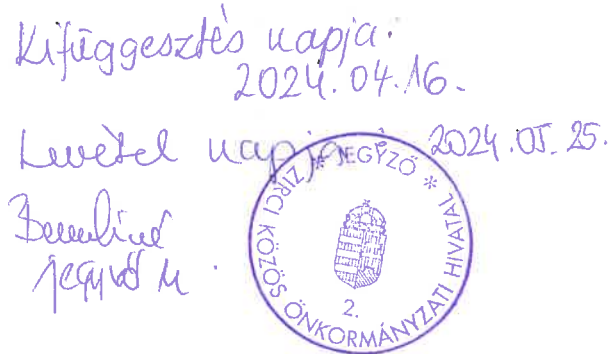 Kifüggesztés napja:
2024.04.16.
Levétel napja: 2024.05.25.
jegyző
ZIRCI KÖZÖS ÖNKORMÁNYZATI HIVATAL * JEGYZŐ *
2.